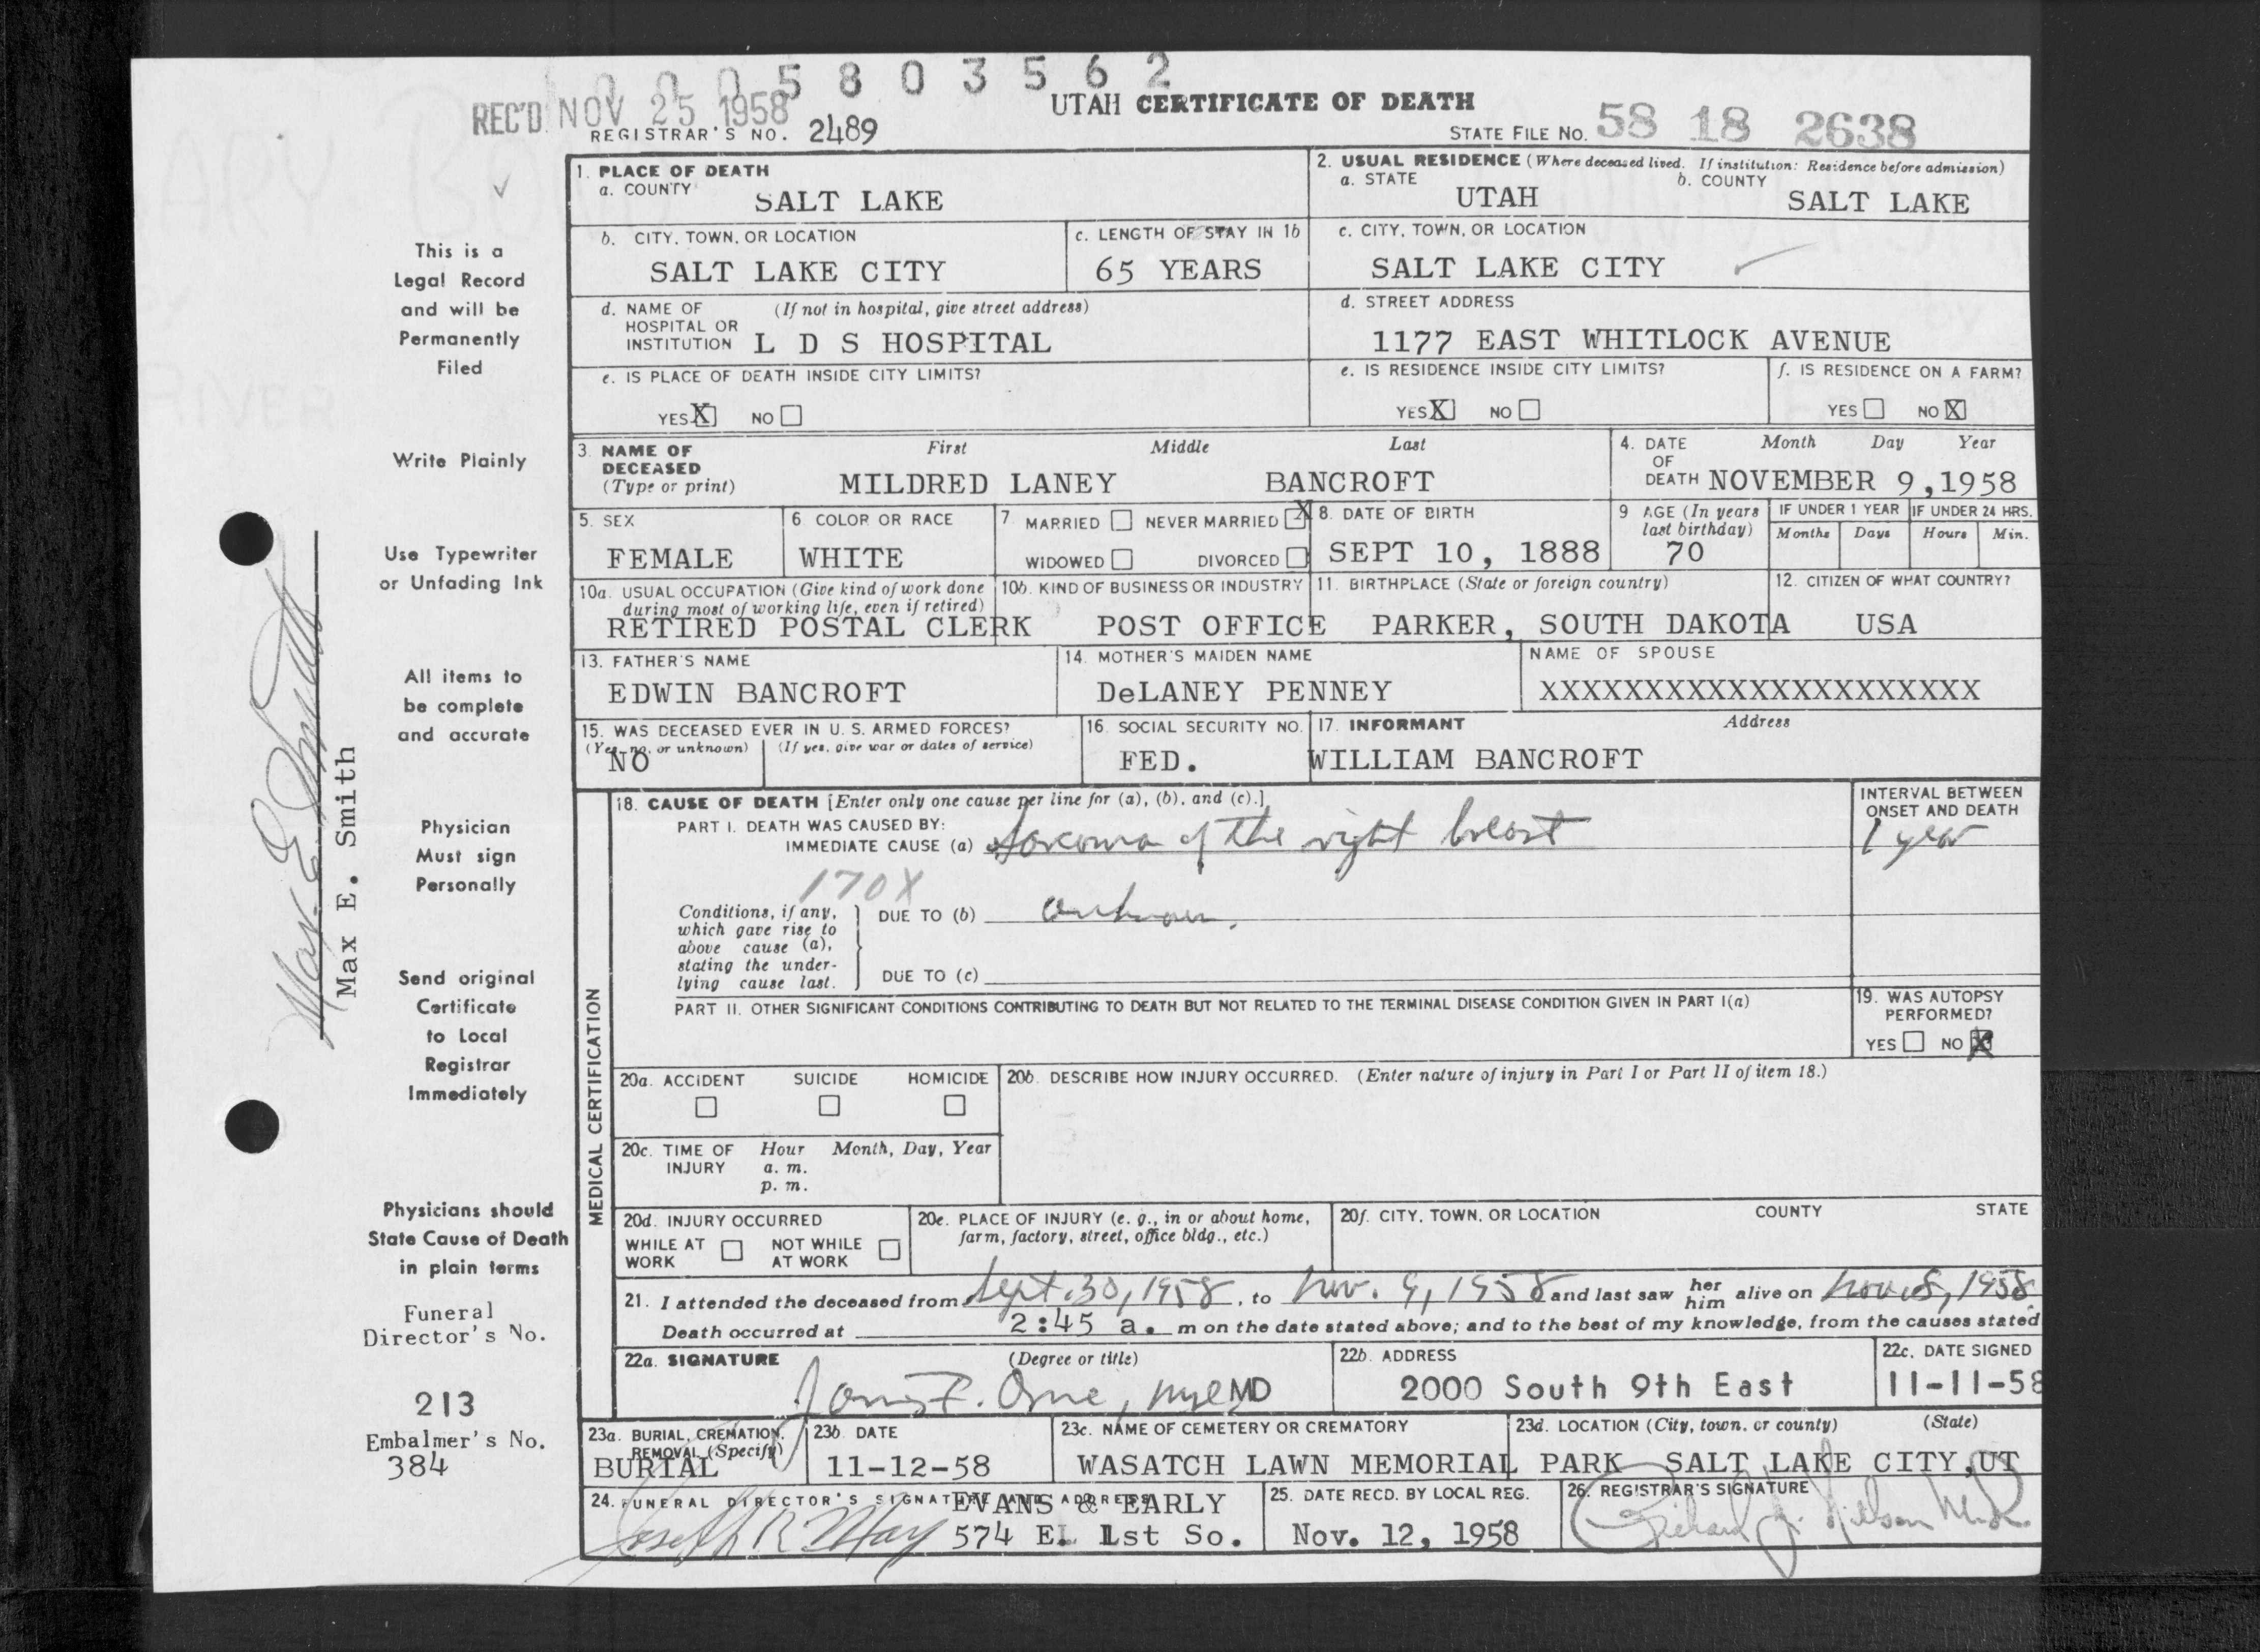 0005803562
REC'D NOV 25 1958
UTAH CERTIFICATE OF DEATH
REGISTRAR'S NO. 2489
STATE FILE NO. 58 18 2638
1. PLACE OF DEATH
a. COUNTY
SALT LAKE
2. USUAL RESIDENCE (Where deceased lived. If institution: Residence before admission)
a. STATE
UTAH
b. COUNTY
SALT LAKE
b. CITY, TOWN, OR LOCATION
SALT LAKE CITY
c. LENGTH OF STAY IN 1b
65 YEARS
c. CITY, TOWN, OR LOCATION
SALT LAKE CITY
d. NAME OF HOSPITAL OR INSTITUTION
(If not in hospital, give street address)
L D S HOSPITAL
d. STREET ADDRESS
1177 EAST WHITLOCK AVENUE
e. IS PLACE OF DEATH INSIDE CITY LIMITS?
YES X NO
e. IS RESIDENCE INSIDE CITY LIMITS?
YES X NO
f. IS RESIDENCE ON A FARM?
YES NO X
3. NAME OF DECEASED
(Type or print)
First Middle Last
MILDRED LANEY BANCROFT
4. DATE OF DEATH
Month Day Year
NOVEMBER 9, 1958
5. SEX
FEMALE
6. COLOR OR RACE
WHITE
7. MARRIED NEVER MARRIED X
WIDOWED DIVORCED
8. DATE OF BIRTH
SEPT 10, 1888
9. AGE (In years last birthday)
70
IF UNDER 1 YEAR
Months Days
IF UNDER 24 HRS.
Hours Min.
10a. USUAL OCCUPATION (Give kind of work done during most of working life, even if retired)
RETIRED POSTAL CLERK
10b. KIND OF BUSINESS OR INDUSTRY
POST OFFICE
11. BIRTHPLACE (State or foreign country)
PARKER, SOUTH DAKOTA
12. CITIZEN OF WHAT COUNTRY?
USA
13. FATHER'S NAME
EDWIN BANCROFT
14. MOTHER'S MAIDEN NAME
DeLANEY PENNEY
NAME OF SPOUSE
XXXXXXXXXXXXXXXXXXXXX
15. WAS DECEASED EVER IN U. S. ARMED FORCES?
(Yes, no, or unknown) (If yes, give war or dates of service)
NO
16. SOCIAL SECURITY NO.
FED.
17. INFORMANT Address
WILLIAM BANCROFT
MEDICAL CERTIFICATION
18. CAUSE OF DEATH [Enter only one cause per line for (a), (b), and (c).]
PART I. DEATH WAS CAUSED BY:
IMMEDIATE CAUSE (a) Sarcoma of the right breast
INTERVAL BETWEEN ONSET AND DEATH
1 year
170X
Conditions, if any, which gave rise to above cause (a), stating the underlying cause last.
DUE TO (b) unknown.
DUE TO (c)
PART II. OTHER SIGNIFICANT CONDITIONS CONTRIBUTING TO DEATH BUT NOT RELATED TO THE TERMINAL DISEASE CONDITION GIVEN IN PART I(a)
19. WAS AUTOPSY PERFORMED?
YES NO X
20a. ACCIDENT SUICIDE HOMICIDE
20b. DESCRIBE HOW INJURY OCCURRED. (Enter nature of injury in Part I or Part II of item 18.)
20c. TIME OF INJURY
Hour Month, Day, Year
a. m.
p. m.
20d. INJURY OCCURRED
WHILE AT WORK NOT WHILE AT WORK
20e. PLACE OF INJURY (e. g., in or about home, farm, factory, street, office bldg., etc.)
20f. CITY, TOWN, OR LOCATION COUNTY STATE
21. I attended the deceased from Sept. 30, 1958, to Nov. 9, 1958 and last saw her him alive on Nov. 8, 1958.
Death occurred at 2:45 a. m on the date stated above; and to the best of my knowledge, from the causes stated
22a. SIGNATURE (Degree or title)
MD
22b. ADDRESS
2000 South 9th East
22c. DATE SIGNED
11-11-58
23a. BURIAL, CREMATION, REMOVAL (Specify)
BURIAL
23b. DATE
11-12-58
23c. NAME OF CEMETERY OR CREMATORY
WASATCH LAWN MEMORIAL PARK
23d. LOCATION (City, town, or county) (State)
SALT LAKE CITY, UT
24. FUNERAL DIRECTOR'S SIGNATURE AND ADDRESS
EVANS & EARLY
Joseph R May 574 E. 1st So.
25. DATE RECD. BY LOCAL REG.
Nov. 12, 1958
26. REGISTRAR'S SIGNATURE
Richard J. Nilsson
This is a
Legal Record
and will be
Permanently
Filed
Write Plainly
Use Typewriter
or Unfading Ink
All items to
be complete
and accurate
Physician
Must sign
Personally
Send original
Certificate
to Local
Registrar
Immediately
Physicians should
State Cause of Death
in plain terms
Funeral
Director's No.
213
Embalmer's No.
384
Max E. Smith
Max E. Smith